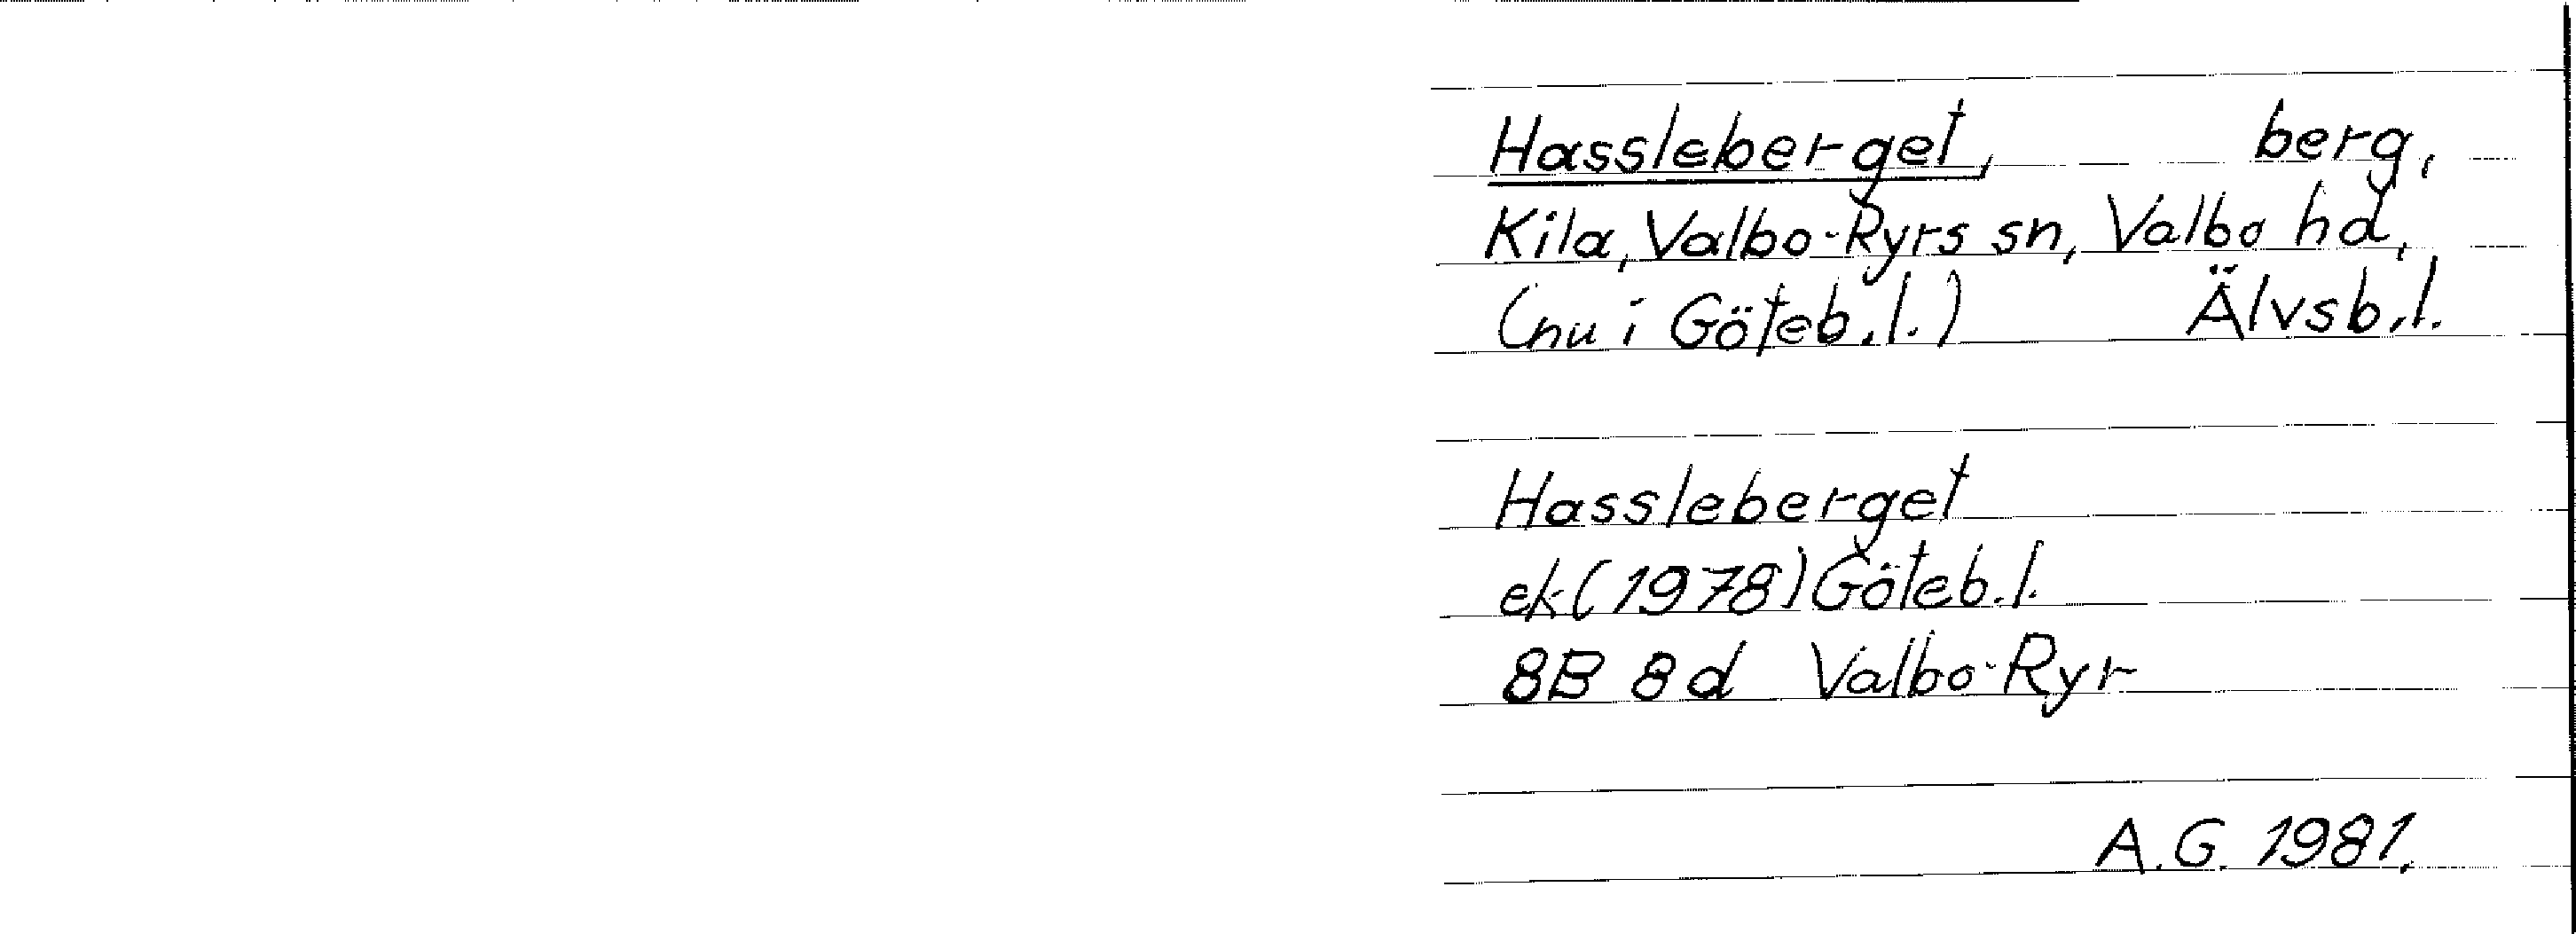 Hassleberget, berg,
Kila, Valbo-Ryrs sn, Valbo hd,
(nu i Göteb.l.) Älvsb.l.
Hassleberget
ek (1978) Göteb.l.
8B 8d Valbo-Ryr
A.G. 1981.